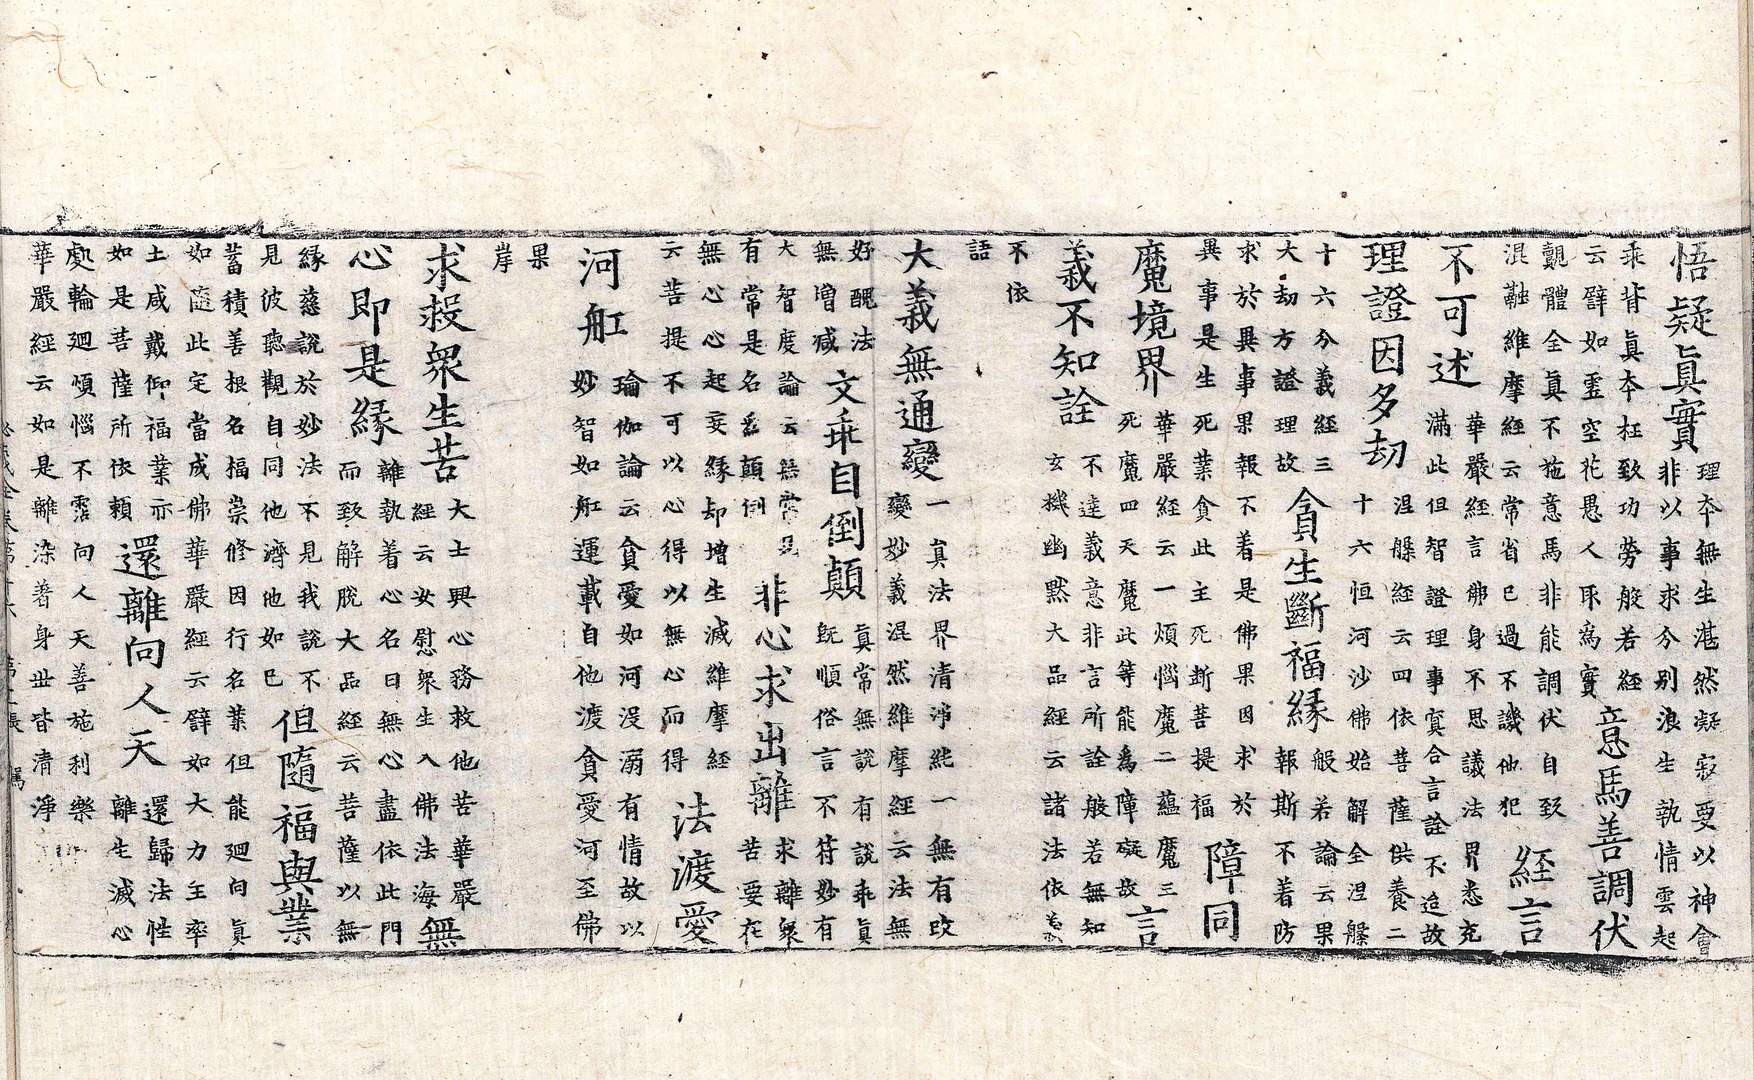 悟疑真實
理本無生湛然凝寂要以神會
非以事求分別浪生執情雲起
乖背真本枉致功勞般若經
云譬如霊空花愚人取為實
意馬善調伏
覿體全真不施意馬非能調伏自致
混融維摩經云常省已過不譏他犯
經言
不可述
華嚴經言佛身不思議法界悉充
滿此但智證理事寞合言詮不迨故
理證因多劫
涅槃經云四依菩薩供養二
十六恒河沙佛始解全涅槃
十六分義經三
大劫方證理故
貪生斷福緣
般若論云果
報斯不着防
求於異事果報不着是佛果因求於
異事是生死業貪此主死断菩提福
障同
魔境界
華嚴經云一煩惱魔二蘊魔三
死魔四天魔此等能爲障礙故
言
義不知詮
不達義意非言所詮般若無知
玄機幽黙大品經云諸法依義
不依
語
大義無通變
一真法界清淨純一無有改
變妙義混然維摩經云法無
好醜法
無増减
文乖自倒顛
真常無說有說乖真
既順俗言不符妙有
大智度論云無常見
有常是名爲顛倒
非心求出離
求離衆
苦要在
無心心起妄緣却增生滅維摩經
云菩提不可以心得以無心而得
法渡愛
河舡
瑜伽論云貪愛如河沒溺有情故以
妙智如舡運載自他渡貪愛河至佛
果
岸
求救衆生苦
大士興心務救他苦華嚴
經云安慰衆生入佛法海
無
心即是緣
離執着心名曰無心盡依此門
而致解脫大品經云菩薩以無
緣慈說於妙法不見我說不
見彼聽觀自同他濟他如己
但隨福與業
蓄積善根名福崇修因行名業但能廻向真
如隨此定當成佛華嚴經云譬如大力王率
土咸戴仰福業示
如是菩薩所依賴
還離向人天
還歸法性
離生滅心
處輪廻煩惱不霑向人天善施利樂
華嚴經云如是離染著身世皆清淨
卷第十六 張 駕